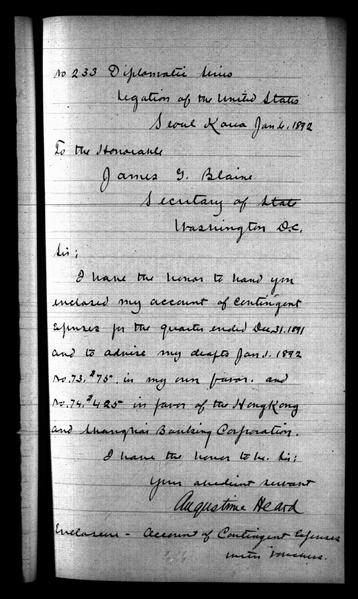 No 233 Diplomatic Series
Legation of the United States
Seoul Korea Jan 4, 1892
To the Honorable
James G. Blaine
Secretary of State
Washington D.C.
Sir;
I have the honor to hand you
enclosed my account of Contingent
Expenses for the quarter ended Dec. 31. 1891
and to advise my drafts Jan. 1. 1892
No. 73. $75. in my own favor. and
No. 74. $425 in favor of the HongKong
and Shanghai Banking Corporation.
I have the honor to be. Sir;
Your obedient servant
Augustine Heard
Enclosure - Account of Contingent Expenses
with vouchers.